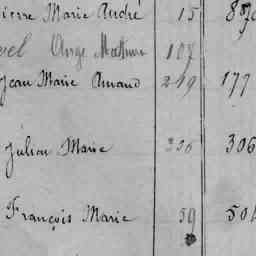 ierre Marie André 15
Ange Mathurin 107
Jean Marie Amand 249 177
Julien Marie 306
François Marie 59 501